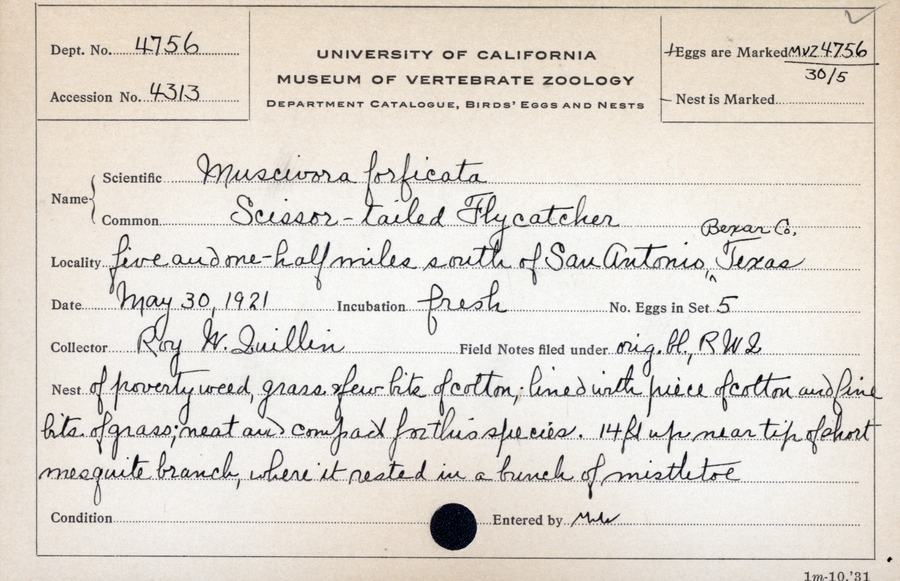 Dept. No. 4756
Accession No. 4313
UNIVERSITY OF CALIFORNIA
MUSEUM OF VERTEBRATE ZOOLOGY
DEPARTMENT CATALOGUE, BIRDS' EGGS AND NESTS
Eggs are Marked MVZ 4756
30/5
Nest is Marked
Name
Scientific Muscivora forficata
Common Scissor-tailed Flycatcher
Bexar Co.,
Locality five and one-half miles south of San Antonio, ^ Texas
Date May 30, 1921 Incubation fresh No. Eggs in Set 5
Collector Roy W. Quillin Field Notes filed under orig. bl., RWQ
Nest of poverty weed, grass & few bits of cotton; lined with piece of cotton and fine
bits of grass; neat and compact for this species. 14 ft up near tip of short
mesquite branch, where it rested in a bunch of mistletoe
Condition Entered by
1m-10,'31